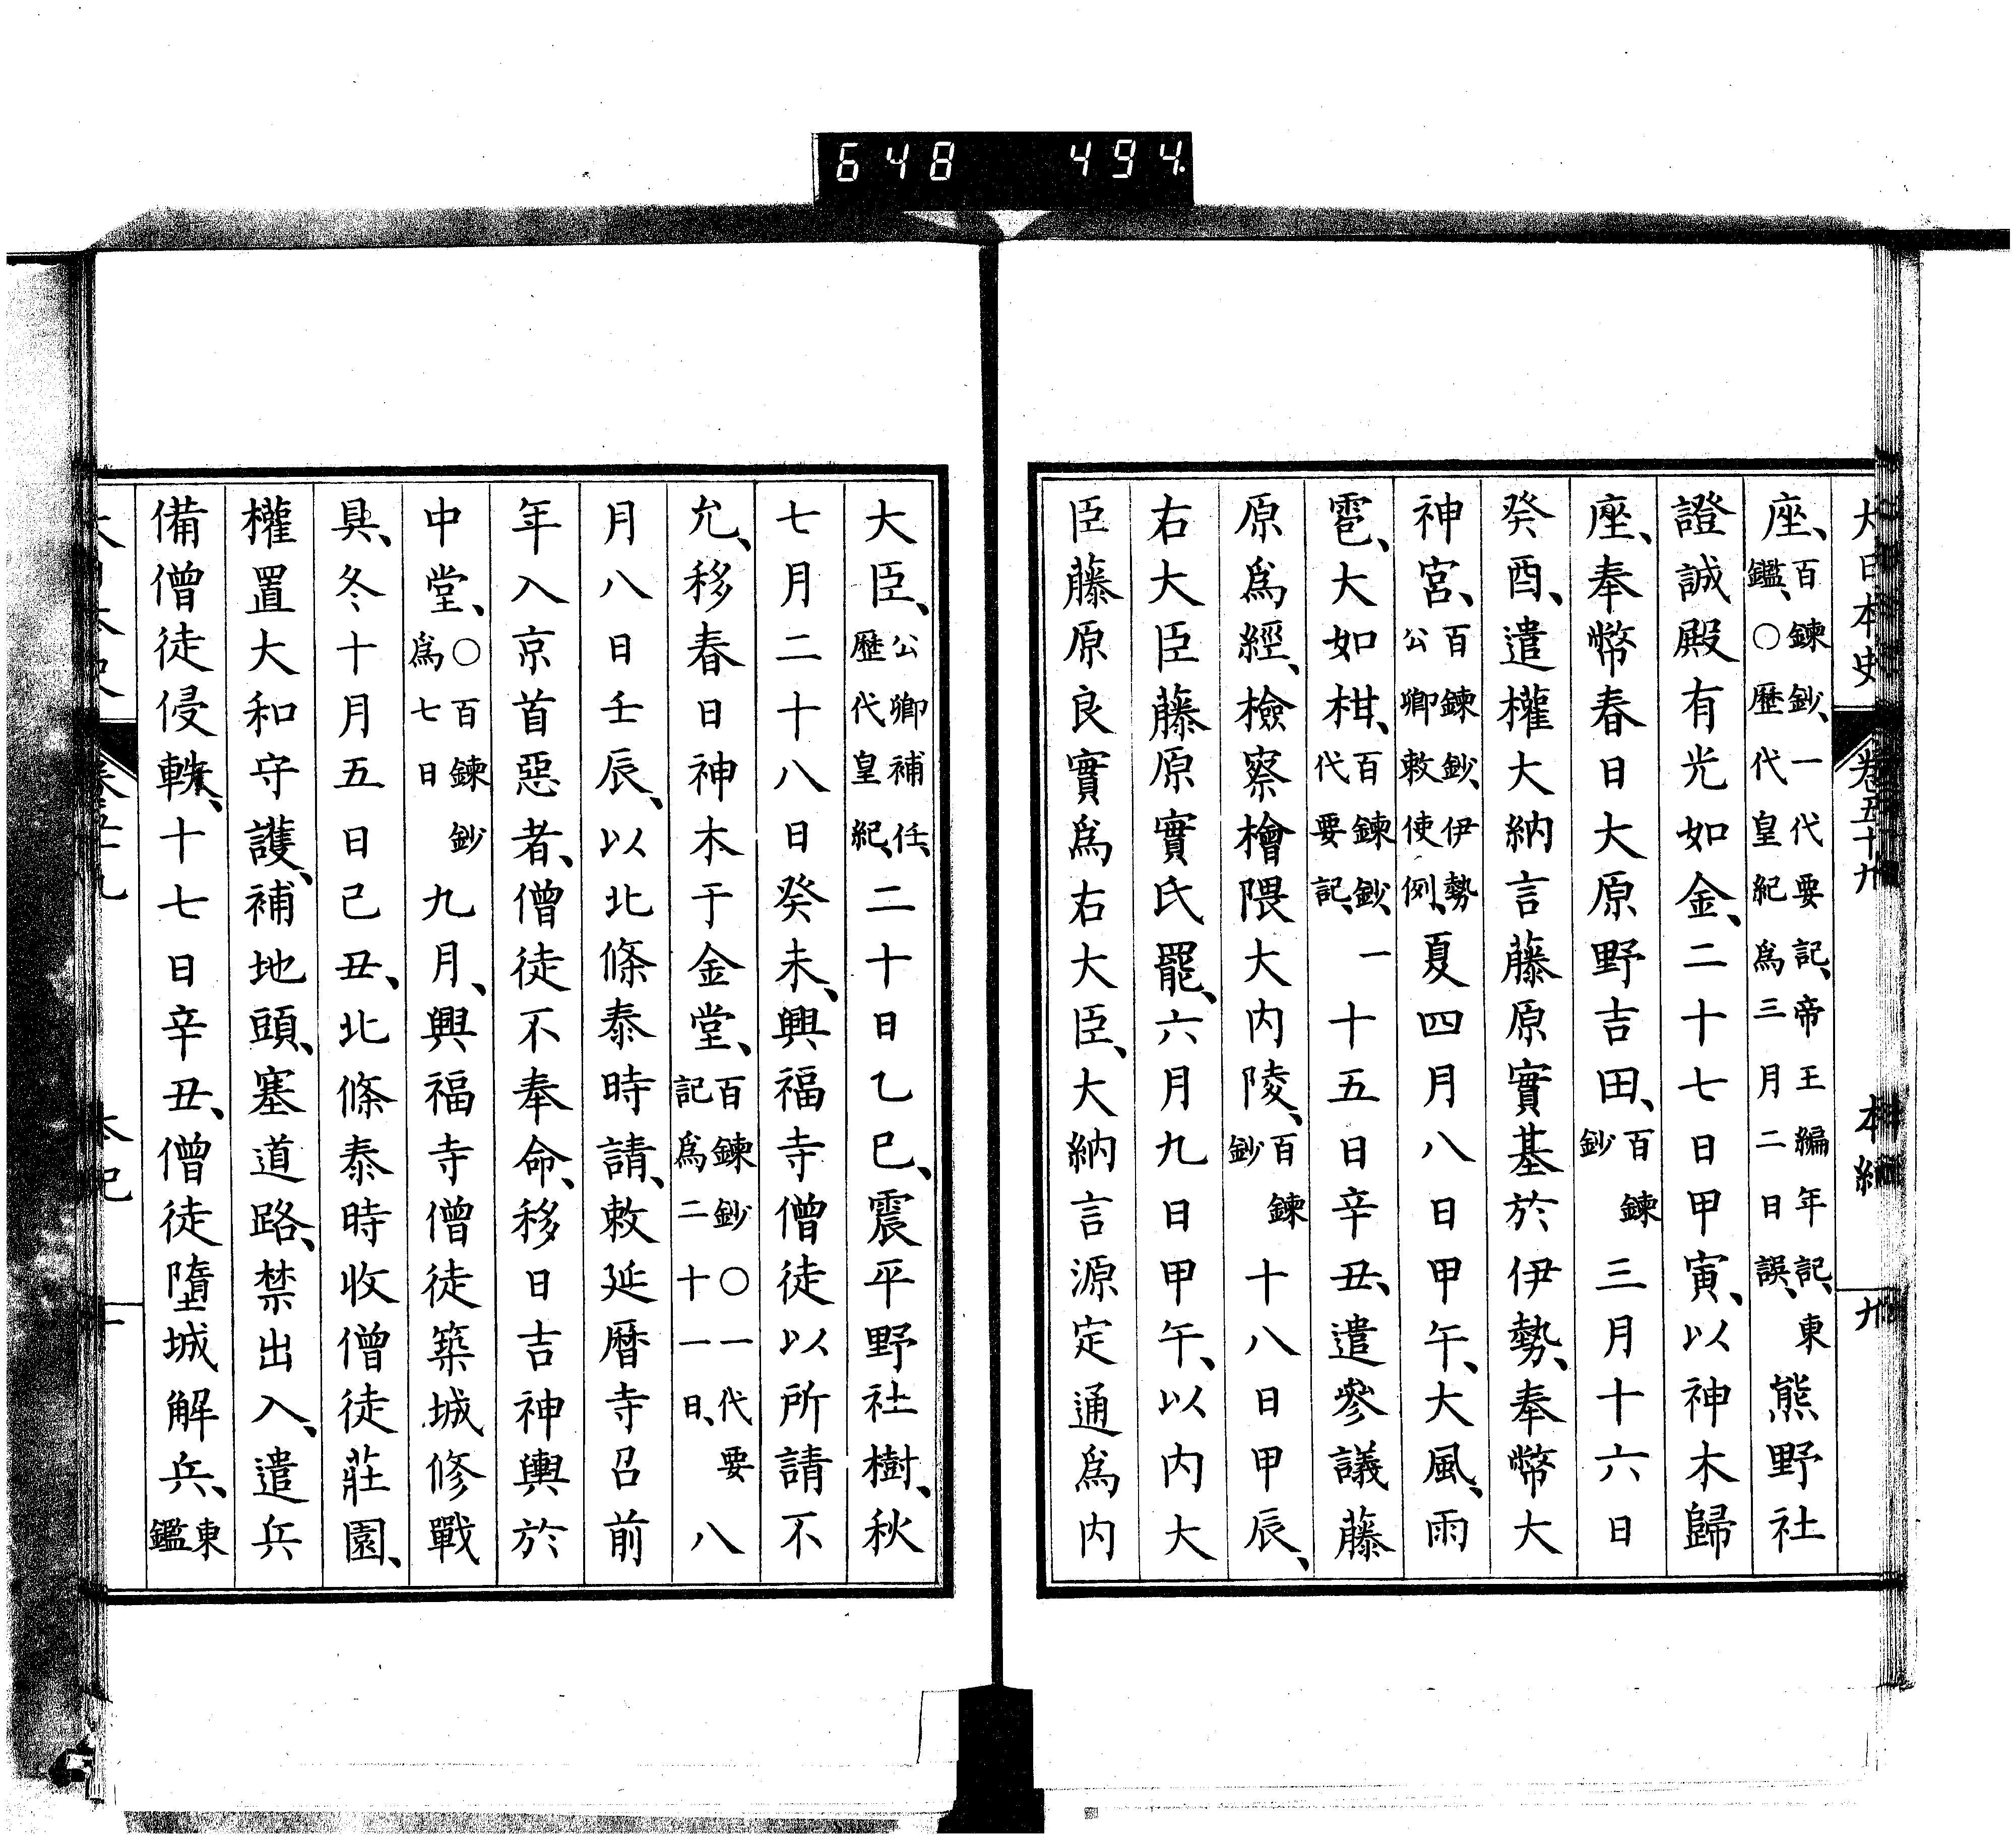 648 494
大日本史 卷五十九 本紀 九
座、百鍊鈔、一代要記、帝王編年記、東鑑、〇歷代皇紀爲三月二日誤、熊野社
證誠殿有光如金、二十七日甲寅、以神木歸
座、奉幣春日大原野吉田、百鍊鈔三月十六日
癸酉、遣權大納言藤原實基於伊勢、奉幣大
神宮、百鍊鈔、伊勢公卿敕使例、夏四月八日甲午、大風、雨
雹、大如柑、百鍊鈔、一代要記、十五日辛丑、遣參議藤
原爲經、檢察檜隈大內陵、百鍊鈔十八日甲辰、
右大臣藤原實氏罷、六月九日甲午、以內大
臣藤原良實爲右大臣、大納言源定通爲內
大臣、公卿補任、歷代皇紀、二十日乙巳、震平野社樹、秋
七月二十八日癸未、興福寺僧徒以所請不
允、移春日神木于金堂、百鍊鈔〇一代要記爲二十一日、八
月八日壬辰、以北條泰時請、敕延曆寺召前
年入京首惡者、僧徒不奉命、移日吉神輿於
中堂、〇百鍊鈔爲七日九月、興福寺僧徒築城修戰
具、冬十月五日己丑、北條泰時收僧徒莊園、
權置大和守護、補地頭、塞道路、禁出入、遣兵
備僧徒侵軼、十七日辛丑、僧徒墮城解兵、東鑑